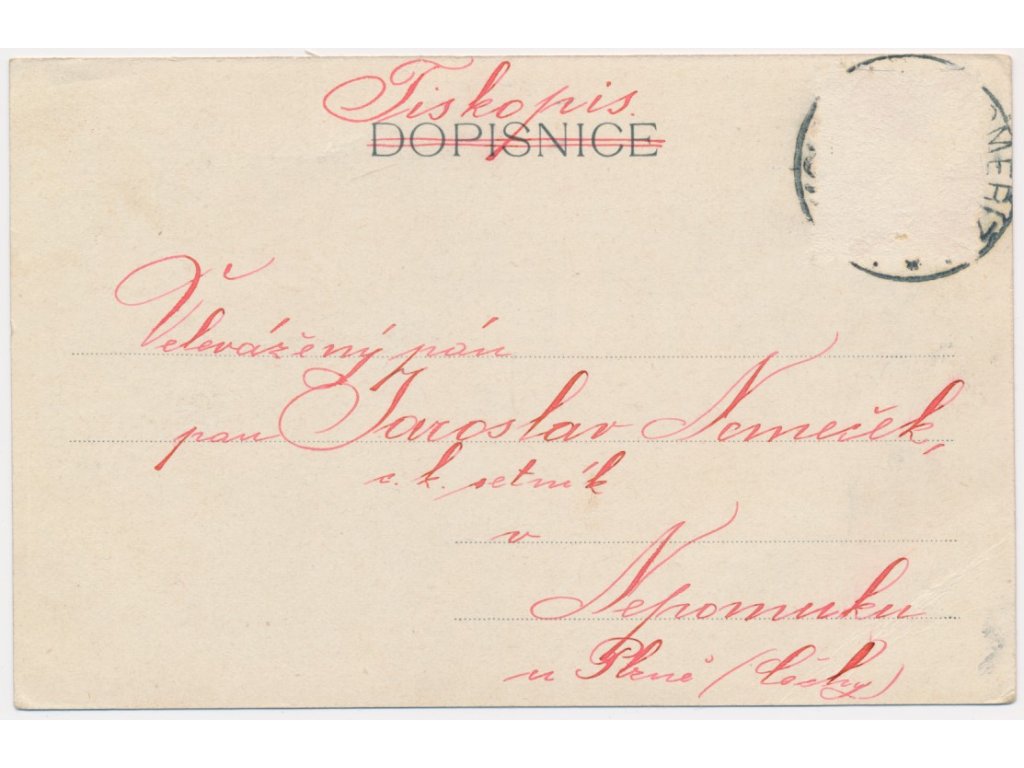 Tiskopis.
DOPISNICE
Velevážený pán
pan Jaroslav Nemeček,
c. k. setník
v
Nepomuku
u Plzně (Čechy)